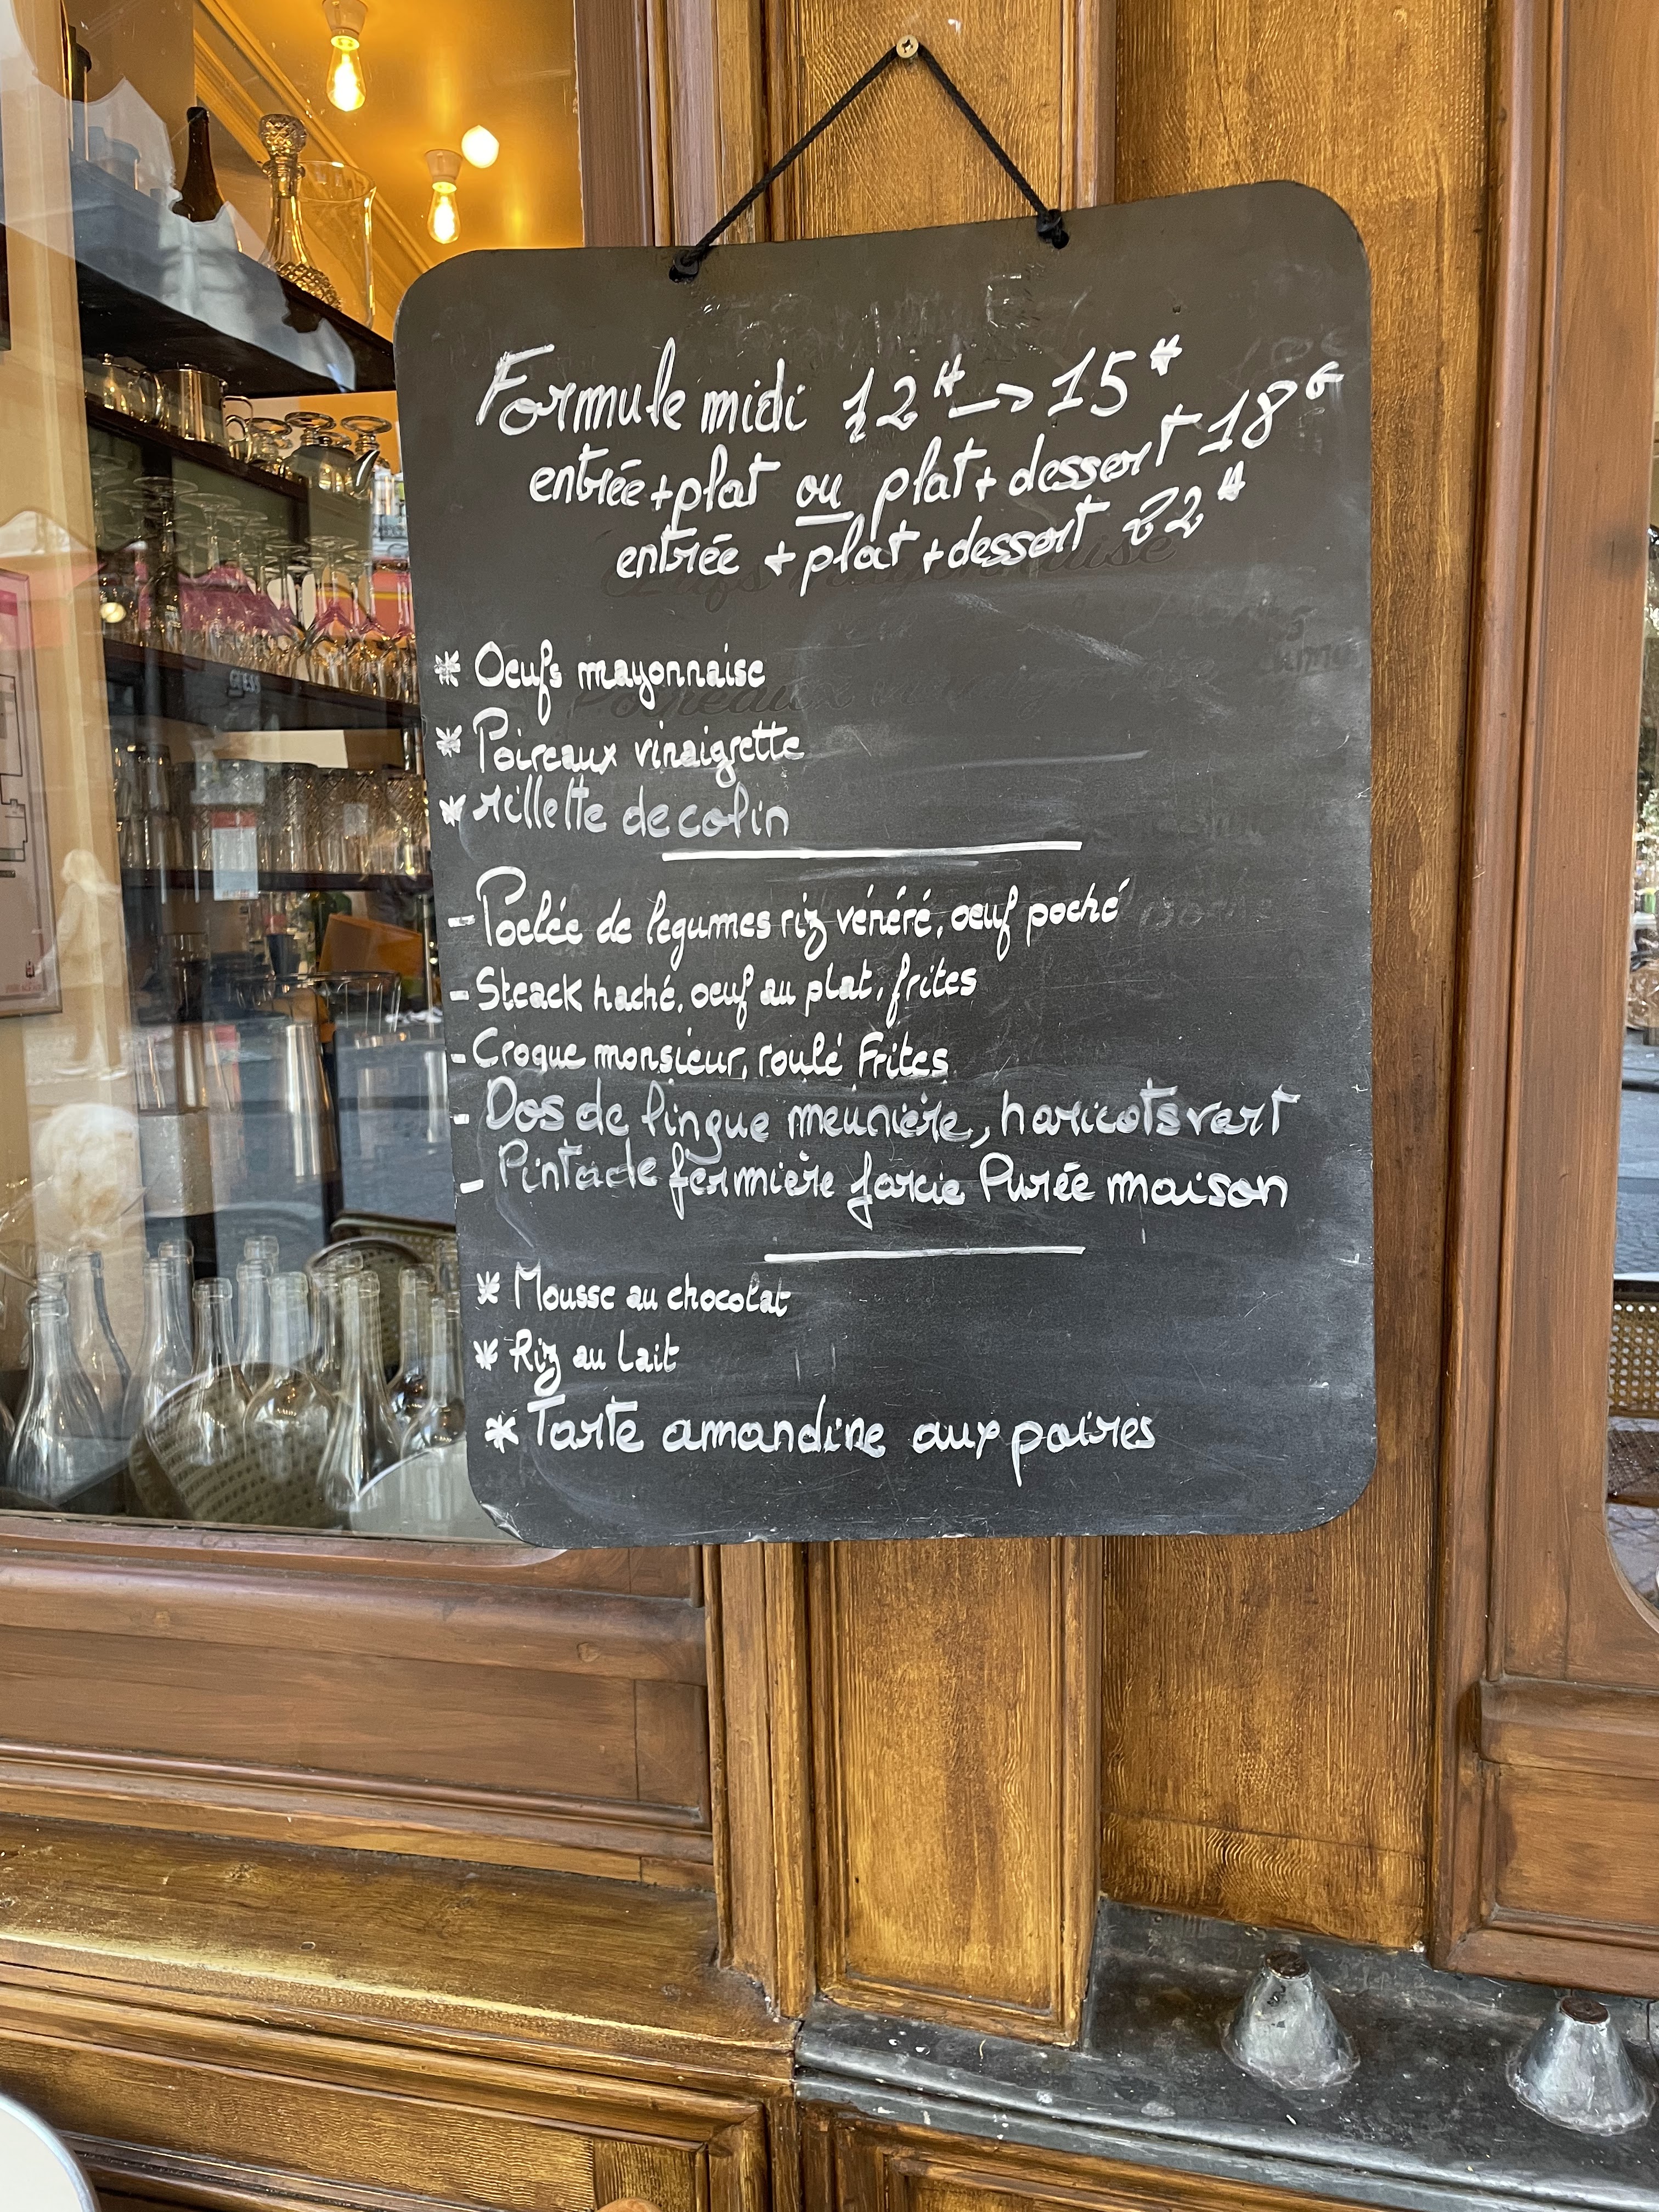 Formule midi 12H -> 15H
entrée + plat ou plat + dessert 18€
entrée + plat + dessert 22€
* Oeufs mayonnaise
* Poireaux vinaigrette
* rillette de colin
- Poelée de legumes riz vénéré, oeuf poché
- Steack haché, oeuf au plat, frites
- Croque monsieur, roulé Frites
- Dos de lingue meunière, haricots vert
- Pintade fermière farcie Purée maison
* Mousse au chocolat
* Riz au Lait
* Tarte amandine aux poires